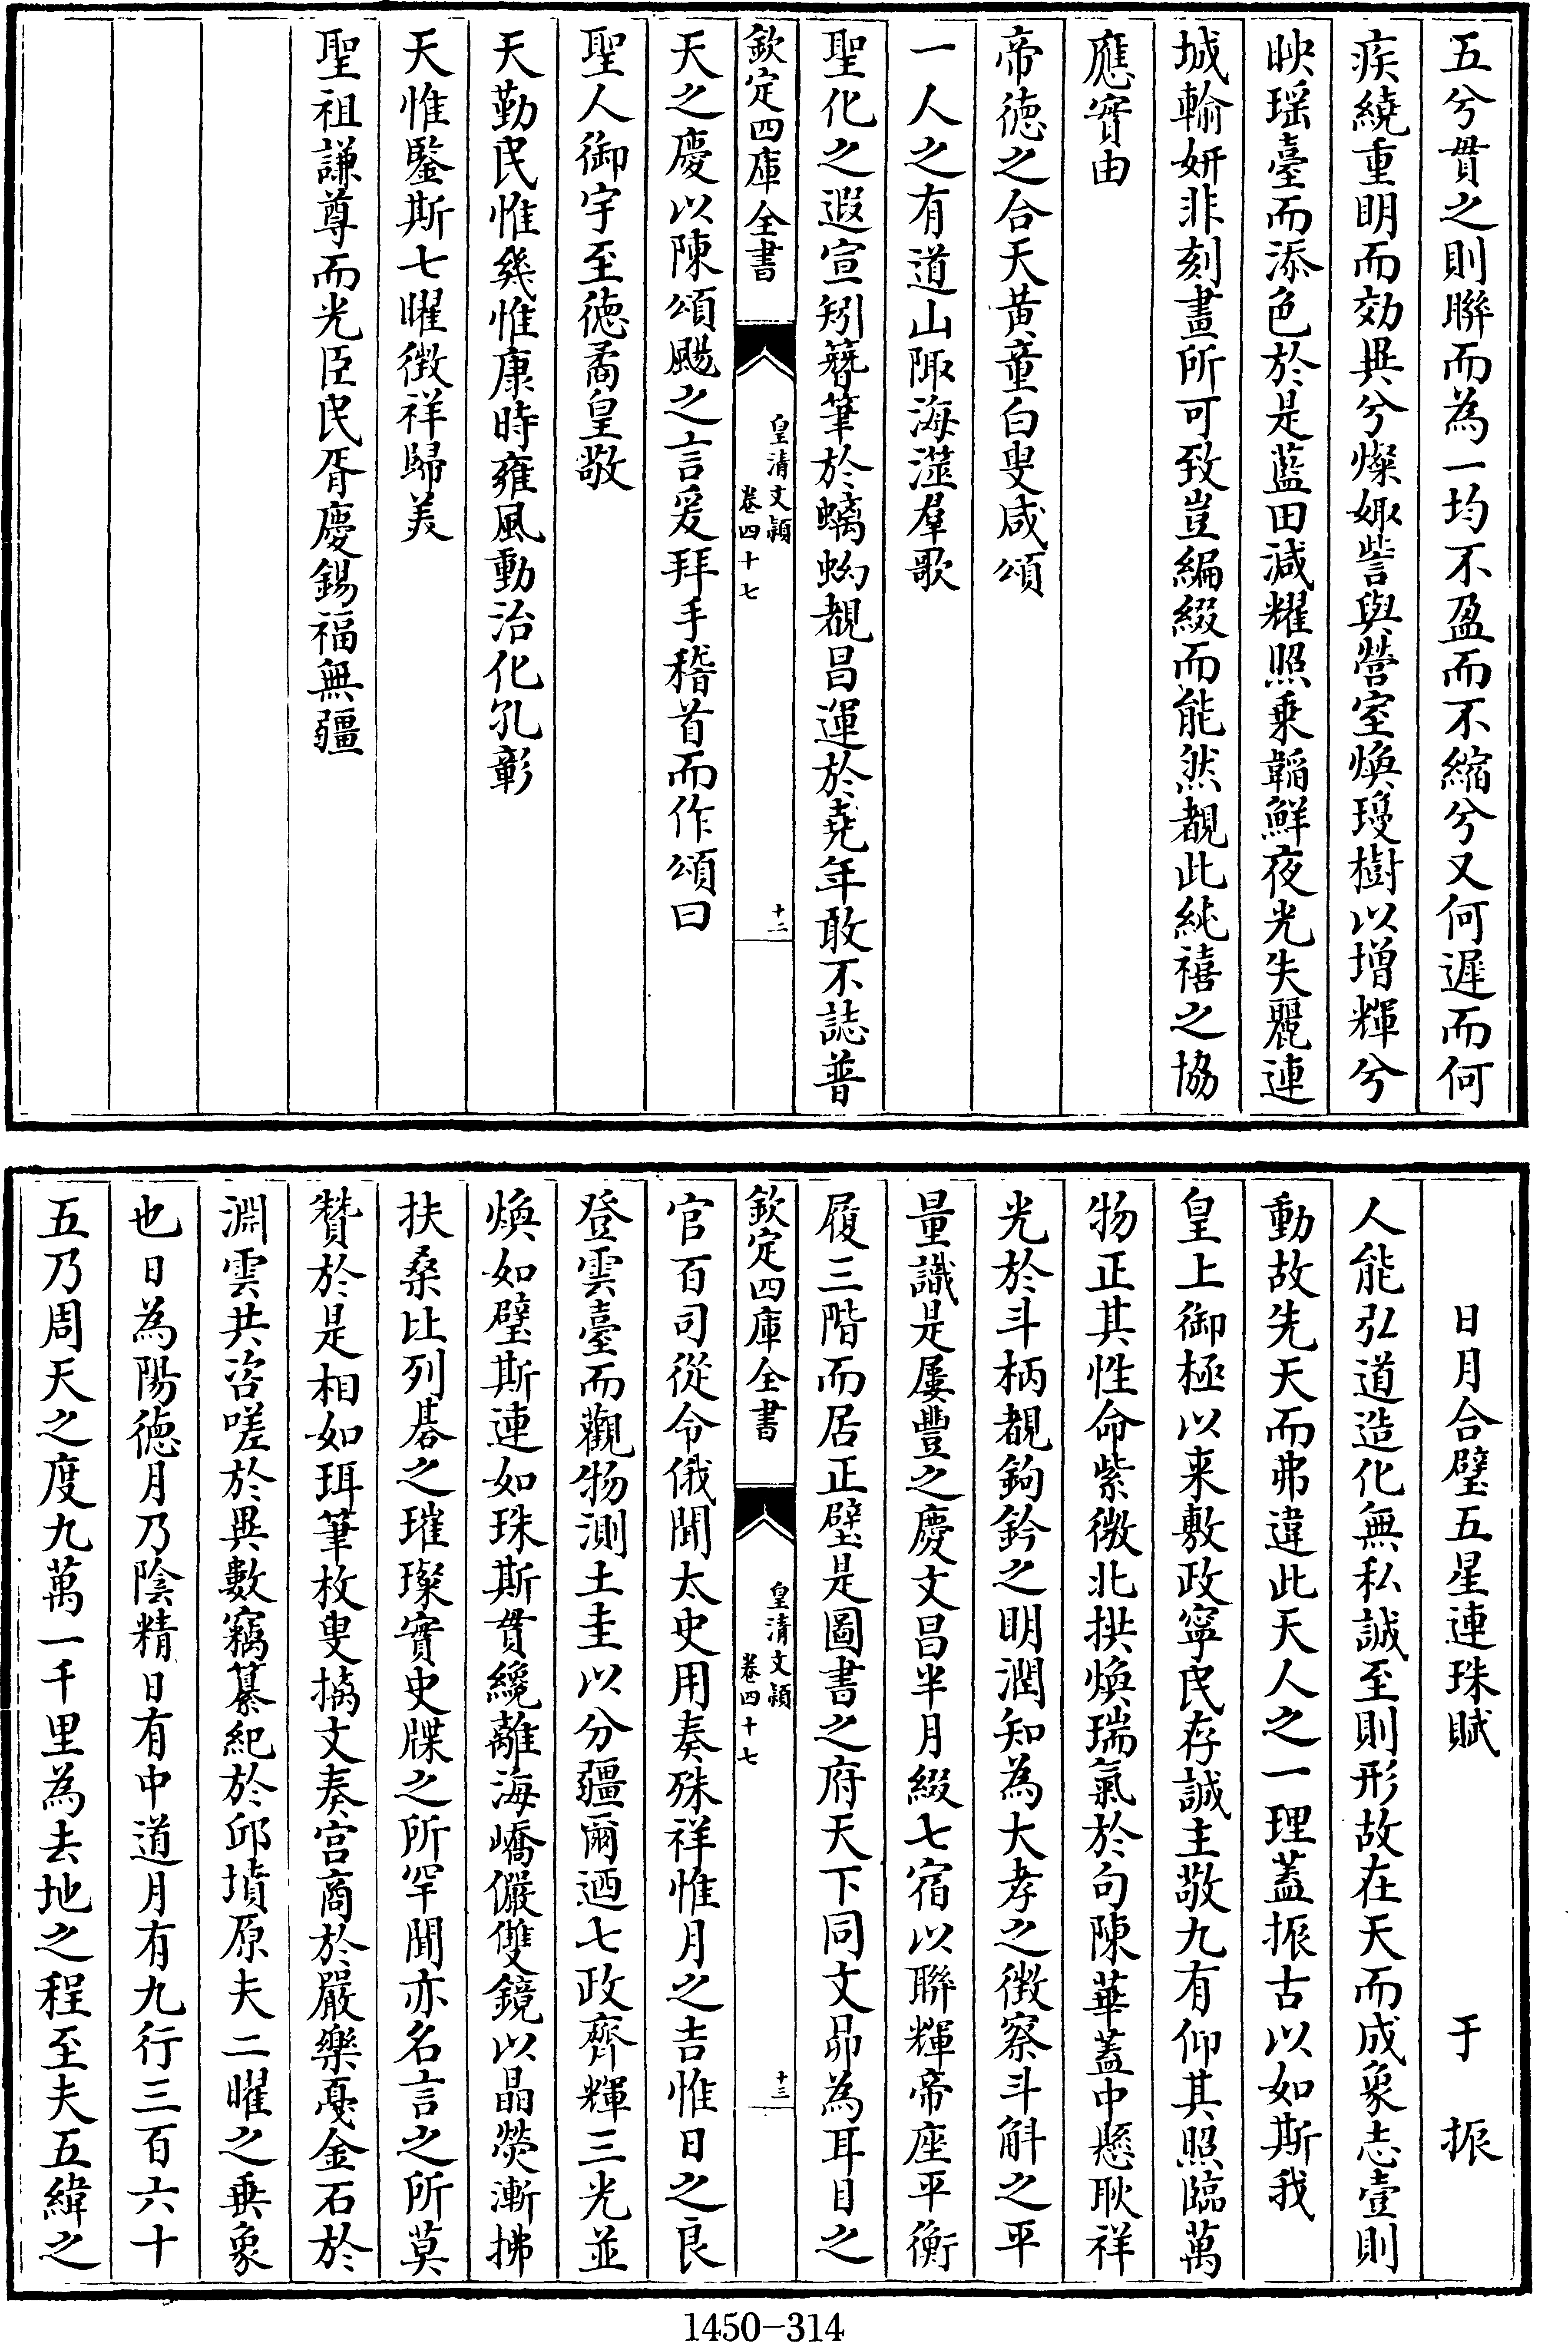 五兮貫之則聯而為一均不盈而不縮兮又何遲而何
疾繞重明而効異兮燦娵訾與營室煥璦樹以增輝兮
映瑶臺而添色於是藍田減耀照乗韜鮮夜光失麗連
城輸妍非刻畫所可致豈編綴而能然覩此純禧之協
應實由
帝徳之合天黄童白叟咸頌
一人之有道山陬海澨羣歌
聖化之遐宣矧簪筆於螭蚴覩昌運於堯年敢不誌普
欽定四庫全書
皇清文穎
卷四十七
十二
天之慶以陳頌颺之言爰拜手稽首而作頌曰
聖人御宇至徳矞皇敬
天勤民惟幾惟康時雍風動治化孔彰
天惟鑒斯七曜徴祥歸美
聖祖謙尊而光臣民胥慶錫福無疆
日月合璧五星連珠賦 于振
人能弘道造化無私誠至則形故在天而成象志壹則
動故先天而弗違此天人之一理蓋振古以如斯我
皇上御極以来敷政寧民存誠主敬九有仰其照臨萬
物正其性命紫微北拱煥瑞氣於句陳華蓋中懸耿祥
光於斗柄覩鉤鈐之明潤知為大孝之徴察斗斛之平
量識是屢豐之慶文昌半月綴七宿以聯輝帝座平衡
履三階而居正壁是圖書之府天下同文昴為耳目之
欽定四庫全書
皇清文穎
卷四十七
十三
官百司從令俄聞太史用奏殊祥惟月之吉惟日之良
登雲臺而觀物測土圭以分疆爾迺七政齊輝三光並
煥如璧斯連如珠斯貫纔離海嶠儼雙鏡以晶熒漸拂
扶桑比列碁之璀璨實史牒之所罕聞亦名言之所莫
贊於是相如珥筆枚叟摛文奏宫商於嚴樂戛金石於
淵雲共咨嗟於異數竊纂紀於邱墳原夫二曜之垂象
也日為陽徳月乃陰精日有中道月有九行三百六十
五乃周天之度九萬一千里為去地之程至夫五緯之
1450-314